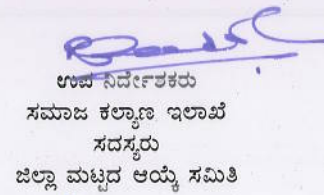 ಉಪ ನಿರ್ದೇಶಕರು
ಸಮಾಜ ಕಲ್ಯಾಣ ಇಲಾಖೆ
ಸದಸ್ಯರು
ಜಿಲ್ಲಾ ಮಟ್ಟದ ಆಯ್ಕೆ ಸಮಿತಿ